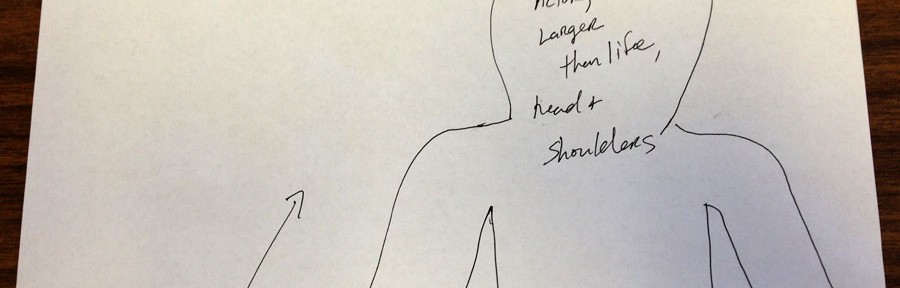 Larger
than life,
head +
shoulders